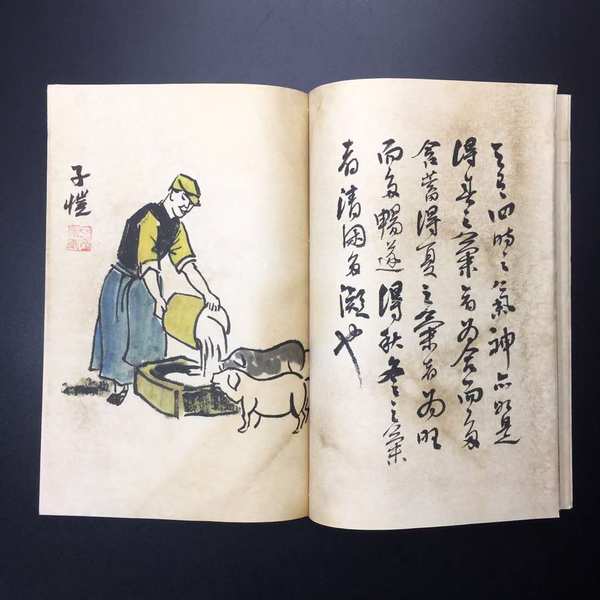 天有四時之氣神亦如是
得春之氣者為而多
含蓄得夏之氣者為旺
而多暢遂得秋冬之氣
者清多凝也
子愷